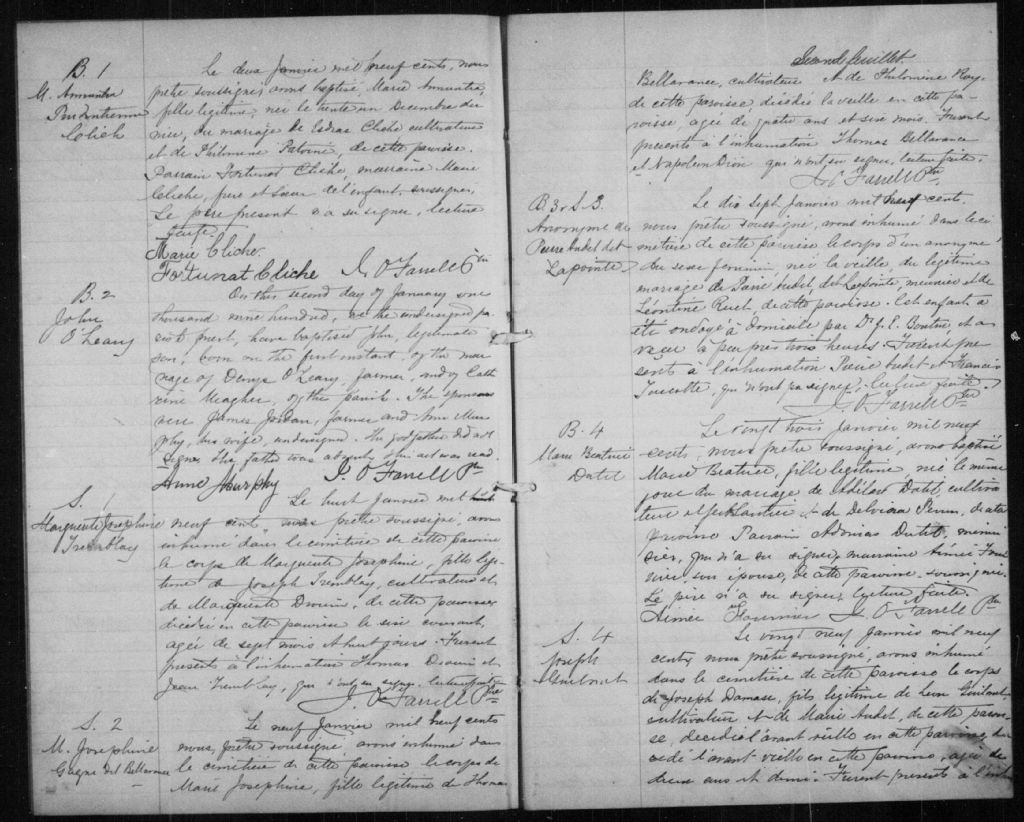 B. 1
M. Annuntia
Prudentienne
Clich
Le deux Janvier mil neuf cents, nous
prêtre soussigné, avons baptisé, Marie Annuntia,
fille légitime, née le trente un Decembre der
nier, du mariage de Esdras Cliche cultivateur
et de Philomene Patoine, de cette paroisse.
Parrain Fortunat Cliche, marraine Marie
Cliche, frere et Soeur de l'enfant, soussignés,
Le père present n'a su signer, lecture
faite.
Marie Cliche.
Fortunat Cliche J. O'Farrell Ptre
B. 2
John
O'Leary
On this second day of January one
thousand nine hundred, we the undersigned pa
rish priest, have baptised John, legitimate
son, born on the first instant, of the mar
riage of Denys O'Leary, farmer, and of Cath
erine Meagher, of this parish. The sponsors
were James Jordan, farmer and Ann Mur
phy, his wife, undersigned. The godfather did not
sign. The father was absent, this act was read.
Anne Murphy J. O'Farrell Ptre
S. 1
Marguerite Josephine
Tremblay
Le huit Janvier mil
neuf cent, nous prêtre soussigné, avons
inhumé dans le cimetière de cette paroisse
le corps de Marguerite Josephine, fille légi-
time de Joseph Tremblay, cultivateur et
de Marguerite Drouin, de cette paroisse,
décédée en cette paroisse le six courant,
agée de sept mois et huit jours. Furent
presents à l'inhumation Thomas Drouin et
Jean Tremblay, qui n'ont su signer, lecture faite
J. O'Farrell Ptre
S. 2
M. Josephine
Gagné dit Bellavance
Le neuf Janvier mil neuf cents
nous, prêtre soussigné, avons inhumé dans
le cimetière de cette paroisse le corps de
Marie Josephine, fille légitime de Thomas
Second feuillet.
Bellavance, cultivateur et de Philomine Roy,
de cette paroisse décédée la veille en cette pa-
roisse, agée de quatre ans et six mois. Furent
presents à l'inhumation Thomas Bellavance
et Napoleon Dion qui n'ont su signer, lecture faite.
J. O'Farrell Ptre
B. 3 & S. 3.
Anonyme de
Pierre Audet dit
Lapointe
Le dix sept Janvier mil neuf cent.
nous prêtre soussigné, avons inhumé dans le ci
metière de cette paroisse le corps d'un anonyme
du sexe feminin, née la veille du légitime
mariage de Pierre Audet, dit Lapointe, meunier et de
Léontine Ruel, de cette paroisse. Cet enfant a
été ondoyé à domicile par Dr J. E. et a
vécu à peu pres trois heures. Furent pre
sents à l'inhumation Pierre Audet et Francis
Turcotte, qui n'ont su signer, lecture faite.
J. O'Farrell Ptre
B. 4
Marie Beatrice
Dutil
Le vingt trois Janvier mil neuf
cent, nous prêtre soussigné, avons baptisé
Marie Beatrice, fille légitime, née le même
jour du mariage de Abilard Dutil, cultiva
teur et ferblantier et de Delvina, de cette
paroisse Parrain Adonias Dutil, menui
sier, qui n'a su signer, marraine Aimée Four
nier, son épouse, de cette paroisse, soussignée.
Le père n'a su signer, lecture faite.
Aimée Fournier J. O'Farrell Ptre
S. 4
Joseph
Guilbault
Le vingt neuf Janvier mil neuf
cents nous prêtre soussigné, avons inhumé
dans le cimetière de cette paroisse le corps
de Joseph Damase, fils légitime de
cultivateur et de Marie Audet, de cette parois-
se, décédé l'avant veille en cette paroisse,
cédé l'avant-veille en cette paroisse, agé de
deux ans et demi. Furent presents à l'inhu